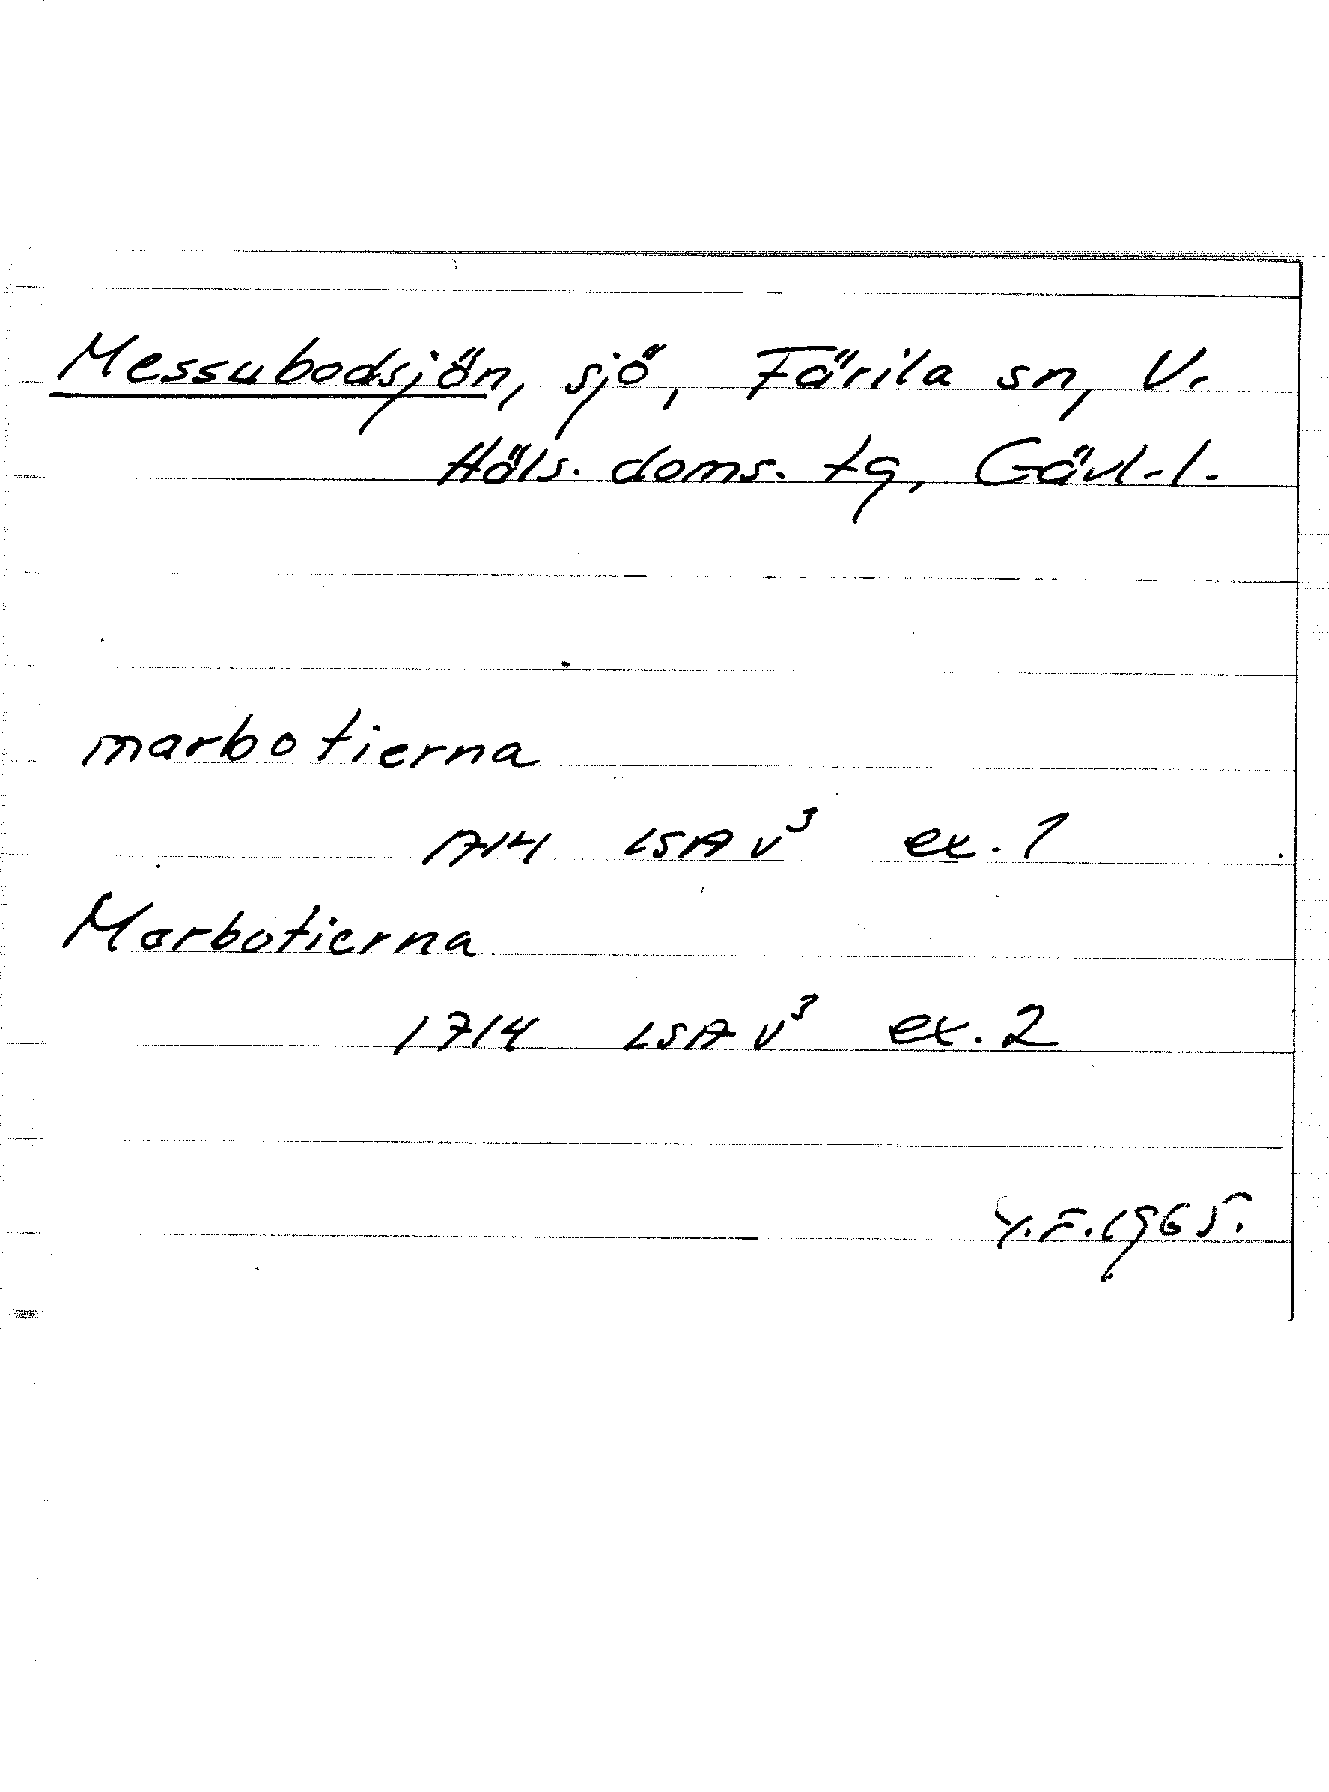 Messubodsjön, sjö, Färila sn, V.
Häls. doms. tg, Gävl. l.
marbotierna
1714 LSA V³ ex. 1
Marbotierna
1714 LSA V³ ex. 2
Y.F. 1965.